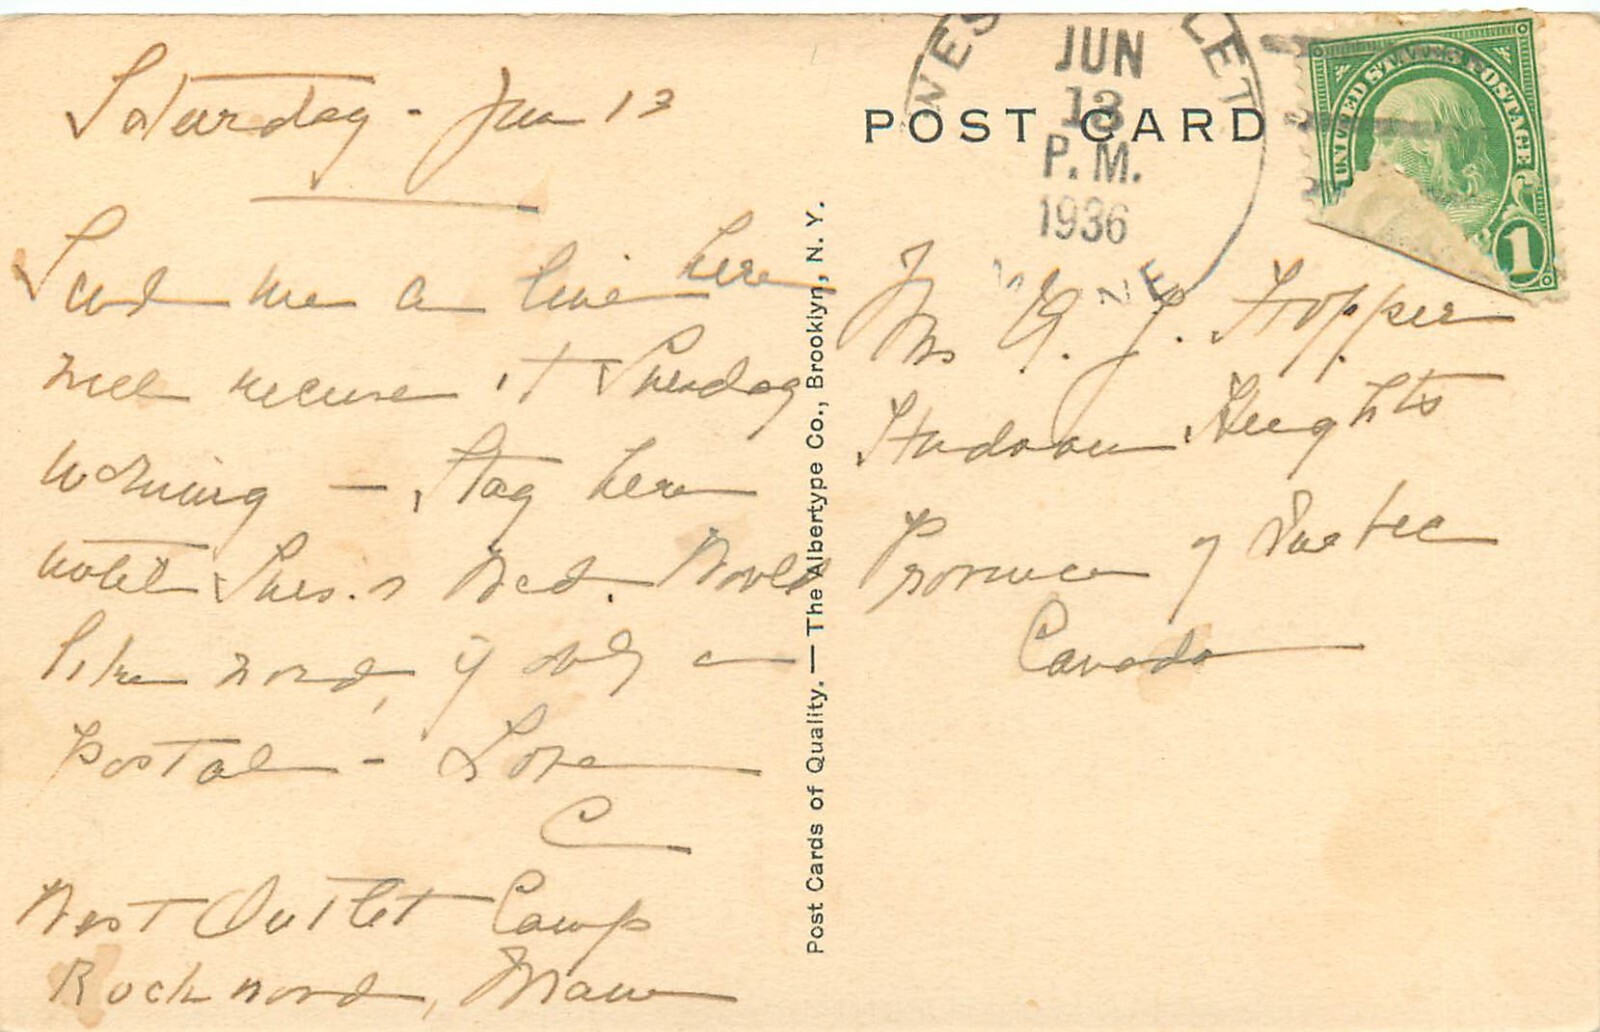 Saturday - Jun 13
Send me a line here
will receive it Tuesday
morning - Stay here
until Tues. & Wed. Would
like word, if only a
postal - Love
C
West Outlet Camp
Rockwood, Maine
Post Cards of Quality. — The Albertype Co., Brooklyn, N. Y.
POST CARD
WES LET
JUN
13
P. M.
1936
M INE
UNITED STATES POSTAGE
1
J. Hopper
Hudson Heights
Province of Quebec
Canada